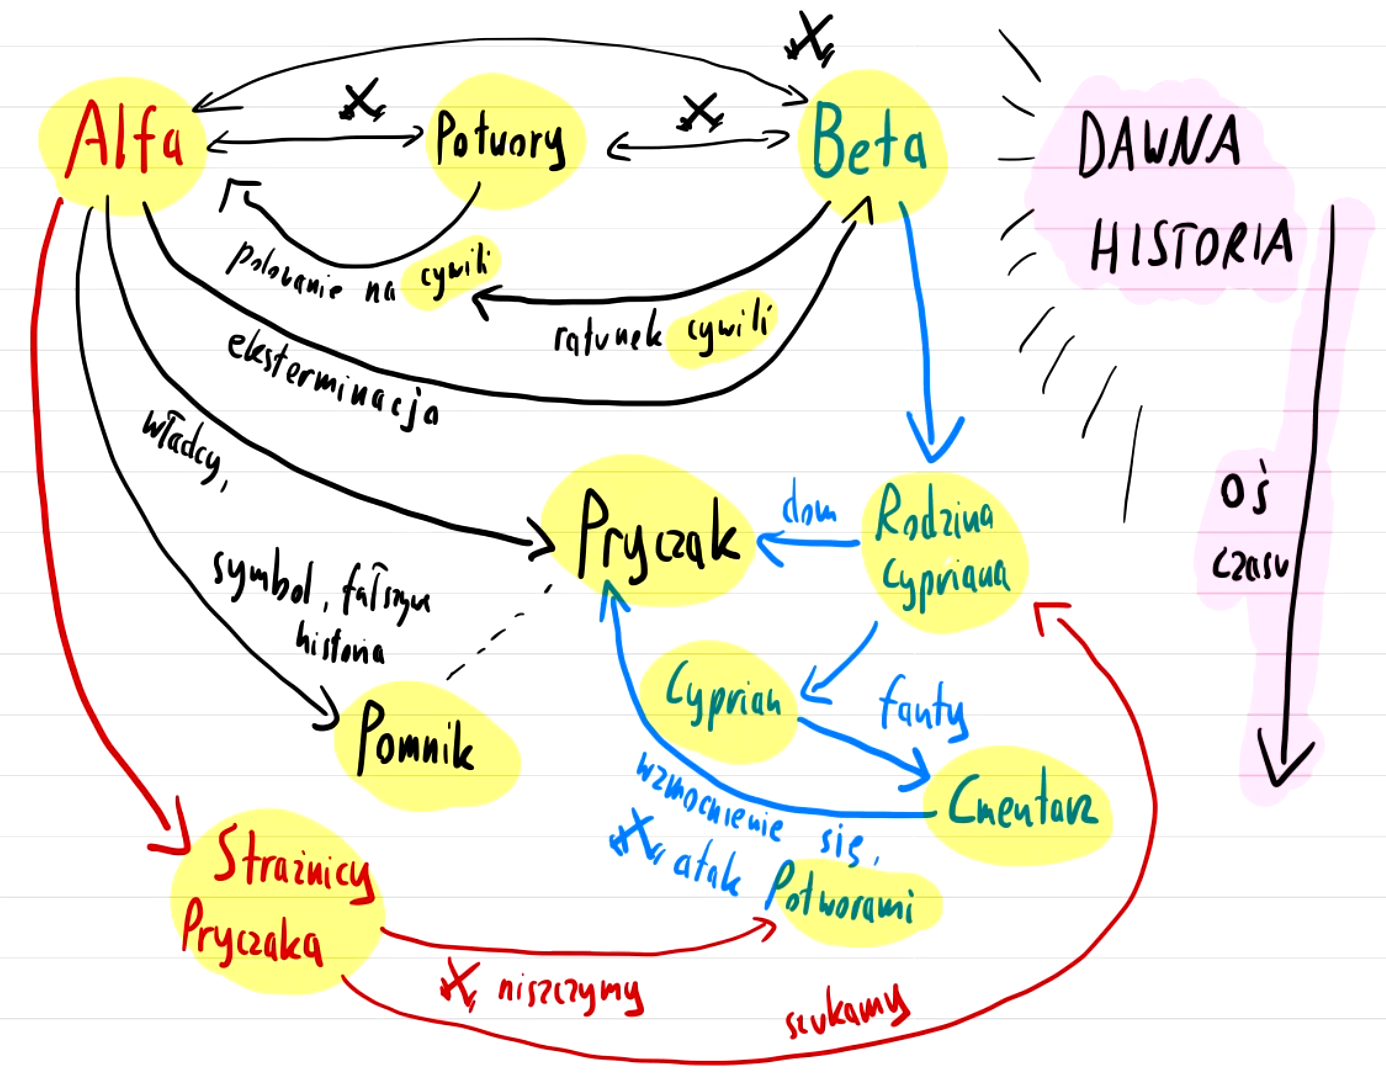 Alfa
Potwory
Beta
DAWNA
HISTORIA
polowanie na cywili
ratunek cywili
eksterminacja
władcy,
symbol, fałszywa
historia
Pryczak
dom
Rodzina
Cypriana
oś
czasu
Cyprian
fanty
Pomnik
Cmentarz
wzmocnienie się,
atak Potworami
Strażnicy
Pryczaka
niszczymy
szukamy